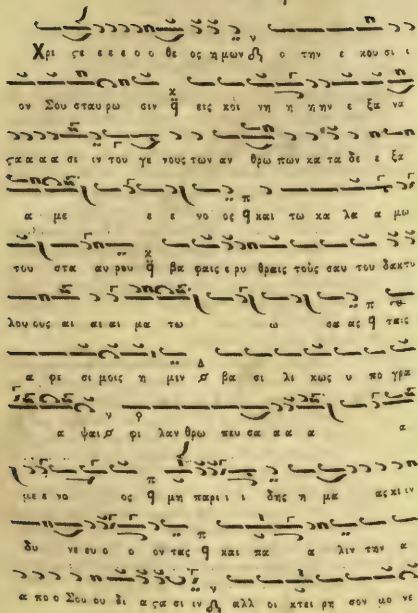 Χρι ςε ε ε ε ο ο θε ος η μων ο την ε κου σι ι
ον Σου σταυ ρω σιν εις κοι νη η η ην ε ξα να
ςα α α α σι ιν του γε νους των αν θρω πων κα τα δε ε ξα
α με ε ε νο ος και τω κα λα α μω
του στα αυ ρου βα φαις ε ρυ θραις τους σαυ του δακτυ
λου ους αι αι αι μα τω ω σα ας ταις
α φε σι μοις η μιν βα σι λι κως υ πο γρα
α ψαι φι λαν θρω πευ σα α α α α
με ε νο ος μη παρι ι ι δης η μα ας κι ιν
δυ νε ευ ο ο ον τας και πα α λιν την α
α πο ο Σου ου δι α ςα σι ιν αλλ οι κτει ρη σον μο νε